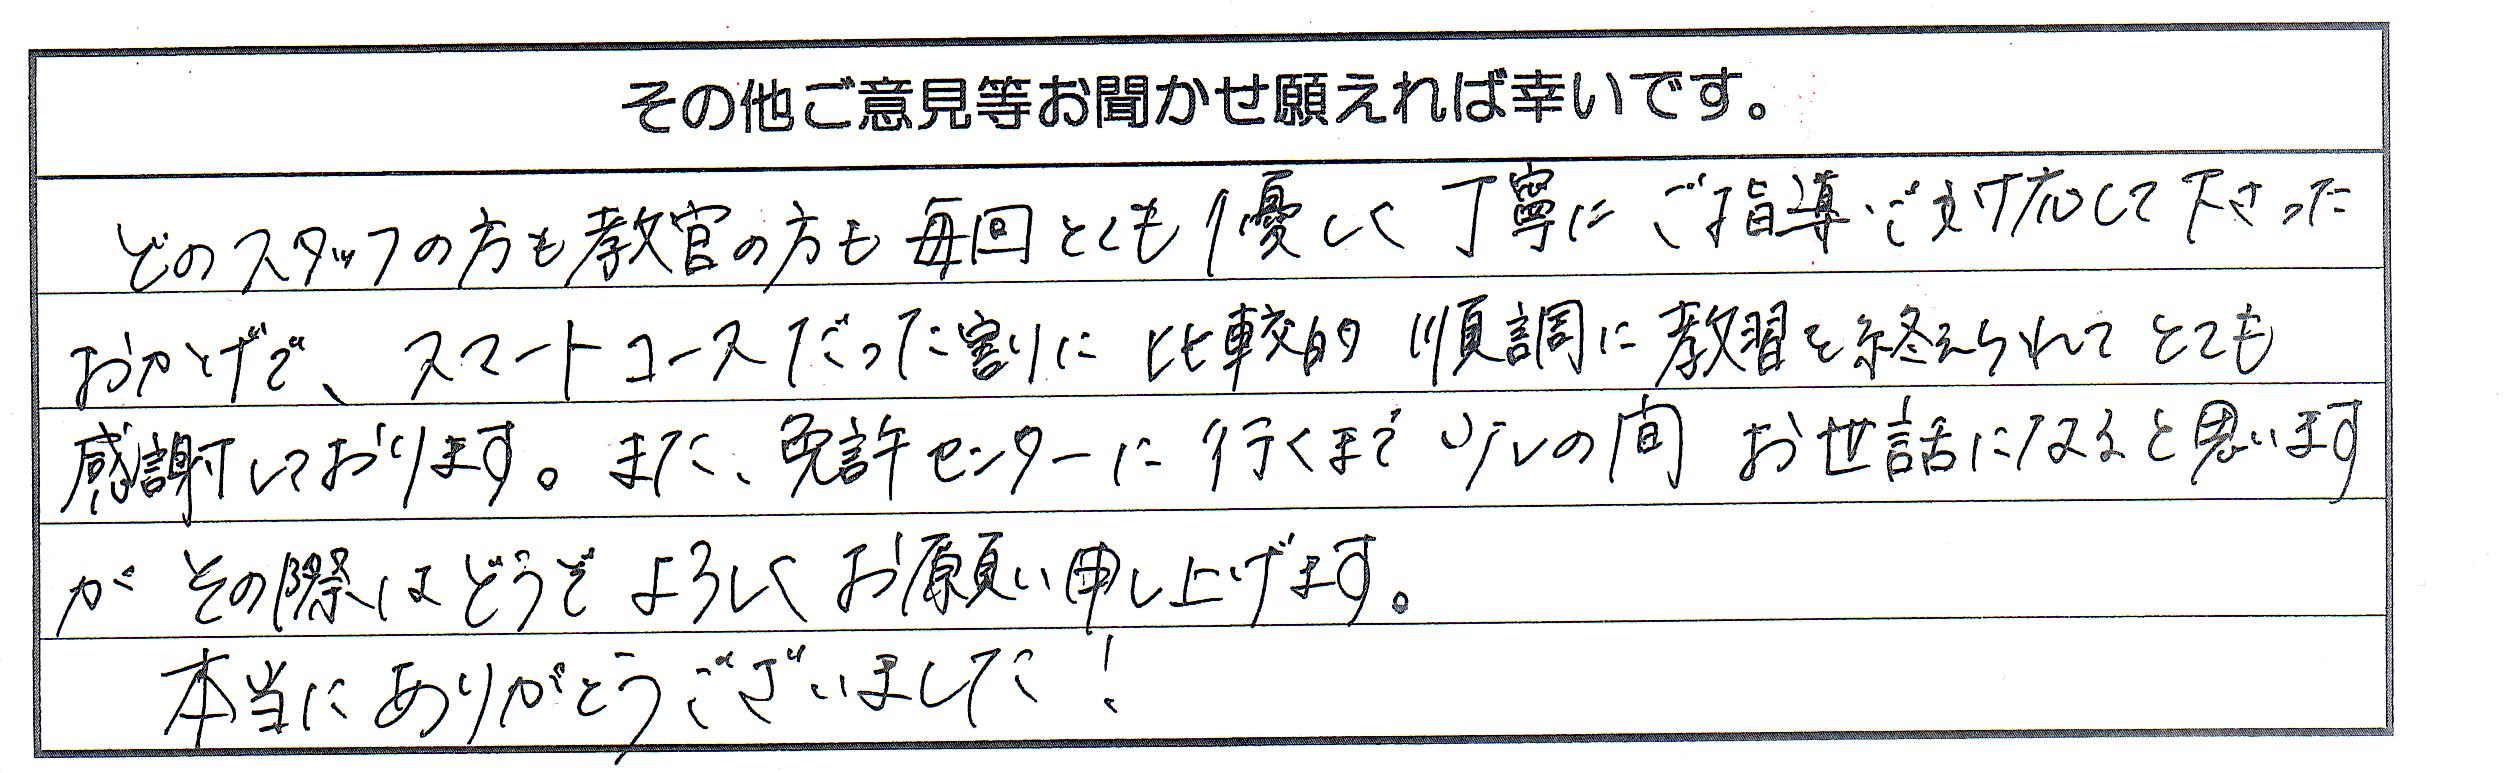 その他ご意見等お聞かせ願えれば幸いです。
どのスタッフの方も教官の方も毎回とても優しく丁寧にご指導・ご対応して下さった
おかげで、スマートコースだった割りに比較的順調に教習を終えられてとても
感謝しております。また、免許センターに行くまで少しの間お世話になると思います
がその際はどうぞよろしくお願い申し上げます。
本当にありがとうございました!